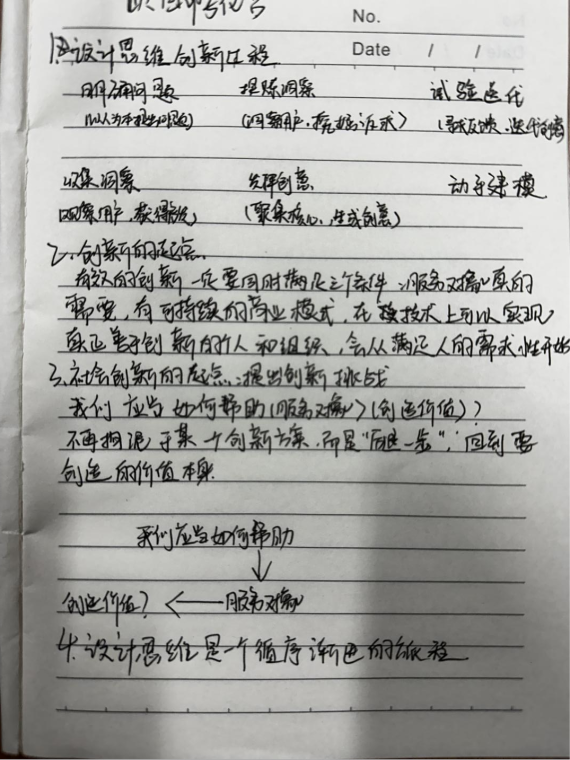 No.
Date / /
1.设计思维创新历程
明确问题 提炼洞察 试验迭代
(以人为本提出问题) (洞察用户,挖掘诉求) (寻求反馈,迭代
收集洞察 发评创意 动手建模
观察用户,获得 (聚集核心,生成创意)
2.创新的起点.
有效的创新一定要同时满足三个条件:服务对象真的
需要,有可持续的商业模式,在技术上可以实现
真正善于创新的个人和组织,会从满足人的需求性开始
3.社会创新的起点:提出创新挑战
我们应当如何帮助(服务对象)(创造价值)?
不再拘泥于某一个创新方案,而是"后退一步",回到要
创造的价值本身.
我们应当如何帮助
创造价值? ← 服务对象
4.设计思维是一个循序渐进的旅程